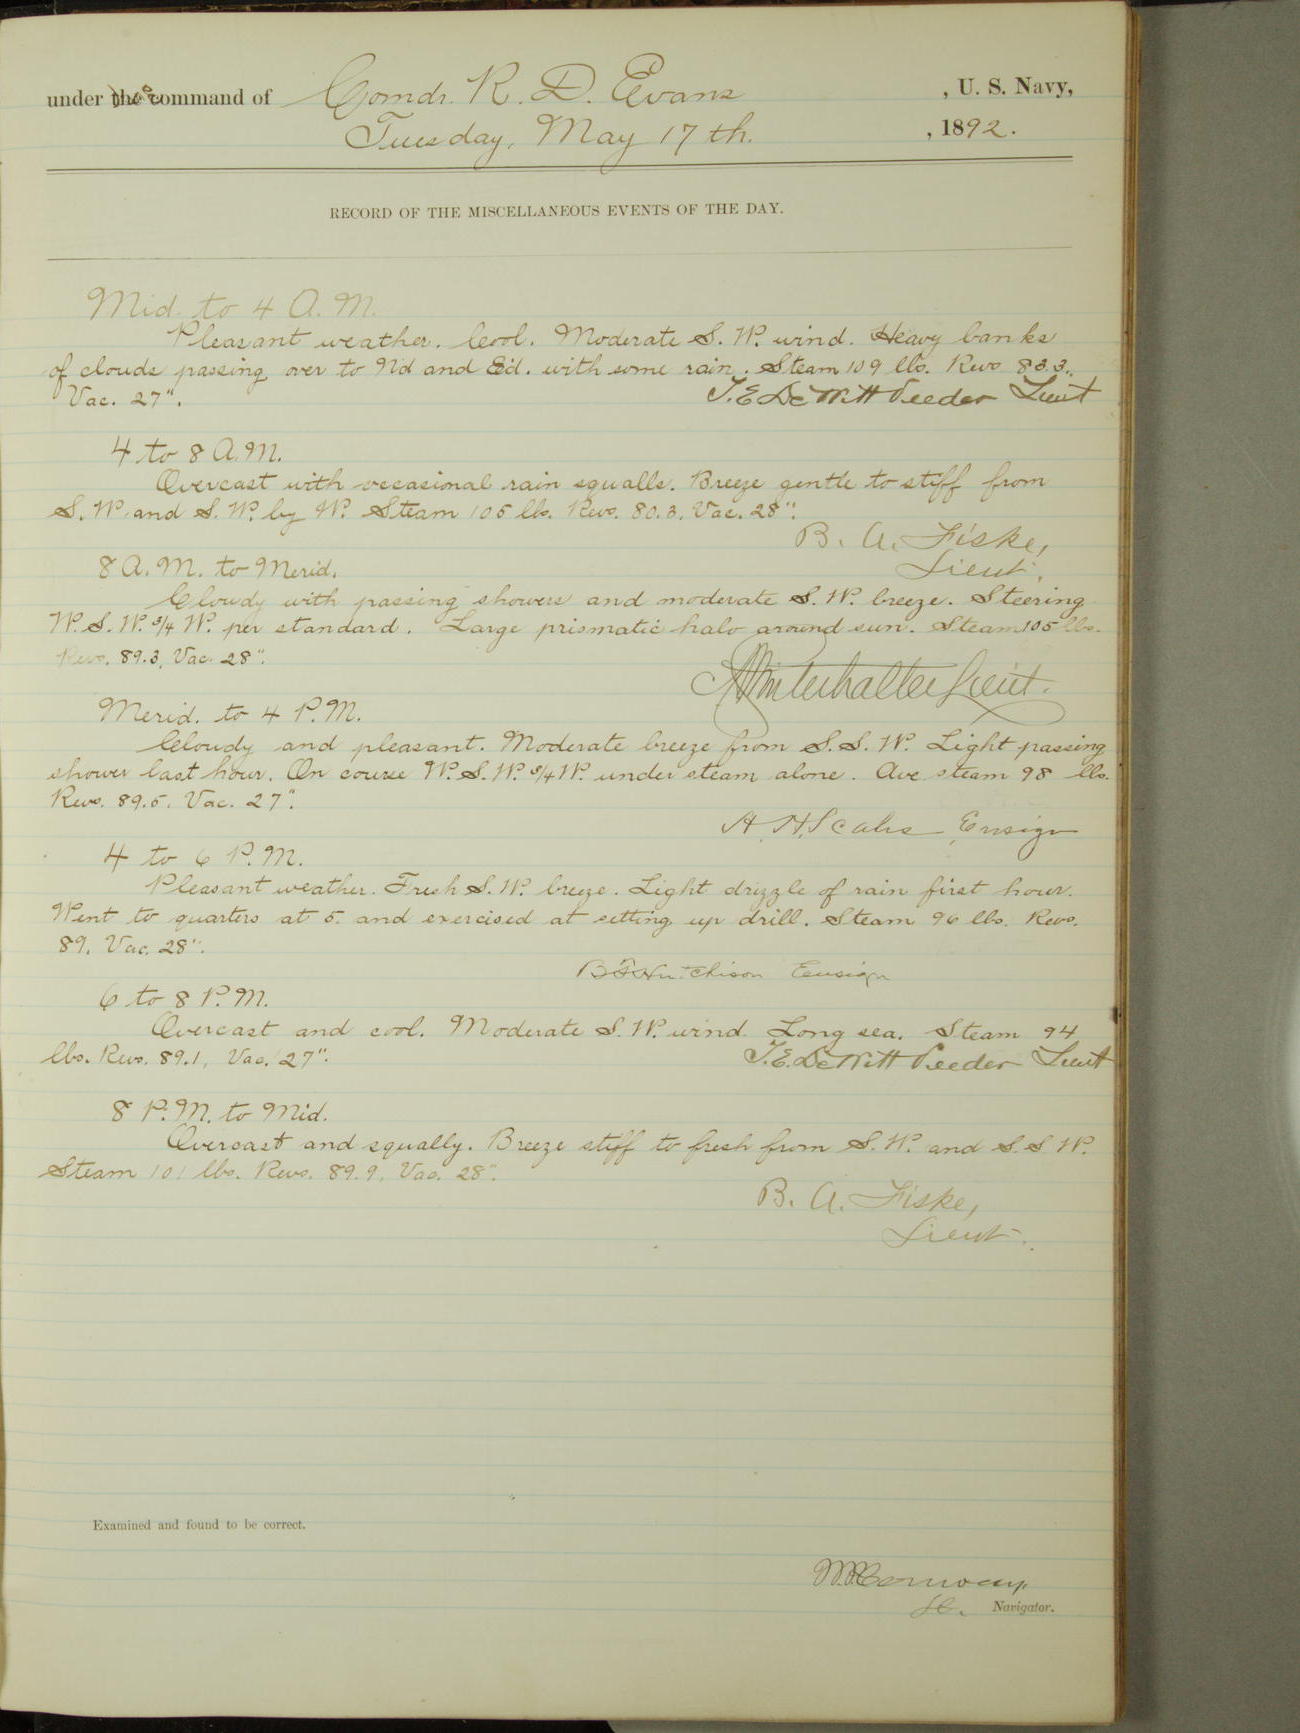 under the command of Comdr. R. D. Evans, U. S. Navy,
Tuesday, May 17th., 1892.
RECORD OF THE MISCELLANEOUS EVENTS OF THE DAY.
Mid. to 4 A.M.
Pleasant weather. Cool. Moderate S. W. wind. Heavy banks
of clouds passing over to N'd and E'd. with some rain. Steam 109 lbs. Revs 83.3.
Vac. 27". T. E. DeWitt Veeder Lieut
4 to 8 A.M.
Overcast with occasional rain squalls. Breeze gentle to stiff from
S. W. and S. W. by W. Steam 105 lbs. Revs. 80.3. Vac. 28".
B. A. Fiske,
Lieut.
8 A.M. to Merid.
Cloudy with passing showers and moderate S. W. breeze. Steering
W. S. W. 3/4 W. per standard. Large prismatic halo around sun. Steam 105 lbs.
Revs. 89.3, Vac. 28".
Winterhalter Lieut.
Merid. to 4 P.M.
Cloudy and pleasant. Moderate breeze from S. S. W. Light passing
shower last hour. On course W. S. W. 3/4 W. under steam alone. Ave steam 98 lbs.
Revs. 89.5. Vac. 27".
A. H. Scales, Ensign
4 to 6 P.M.
Pleasant weather. Fresh S. W. breeze. Light drizzle of rain first hour.
Went to quarters at 5 and exercised at setting up drill. Steam 96 lbs. Revs.
89. Vac. 28".
B F Hutchison Ensign
6 to 8 P.M.
Overcast and cool. Moderate S. W. wind. Long sea. Steam 94
lbs. Revs. 89.1, Vac. 27". T. E. DeWitt Veeder Lieut
8 P.M. to Mid.
Overcast and squally. Breeze stiff to fresh from S. W. and S. S W.
Steam 101 lbs. Revs. 89.9, Vac. 28".
B. A. Fiske,
Lieut.
Examined and found to be correct.
Conway
Navigator.